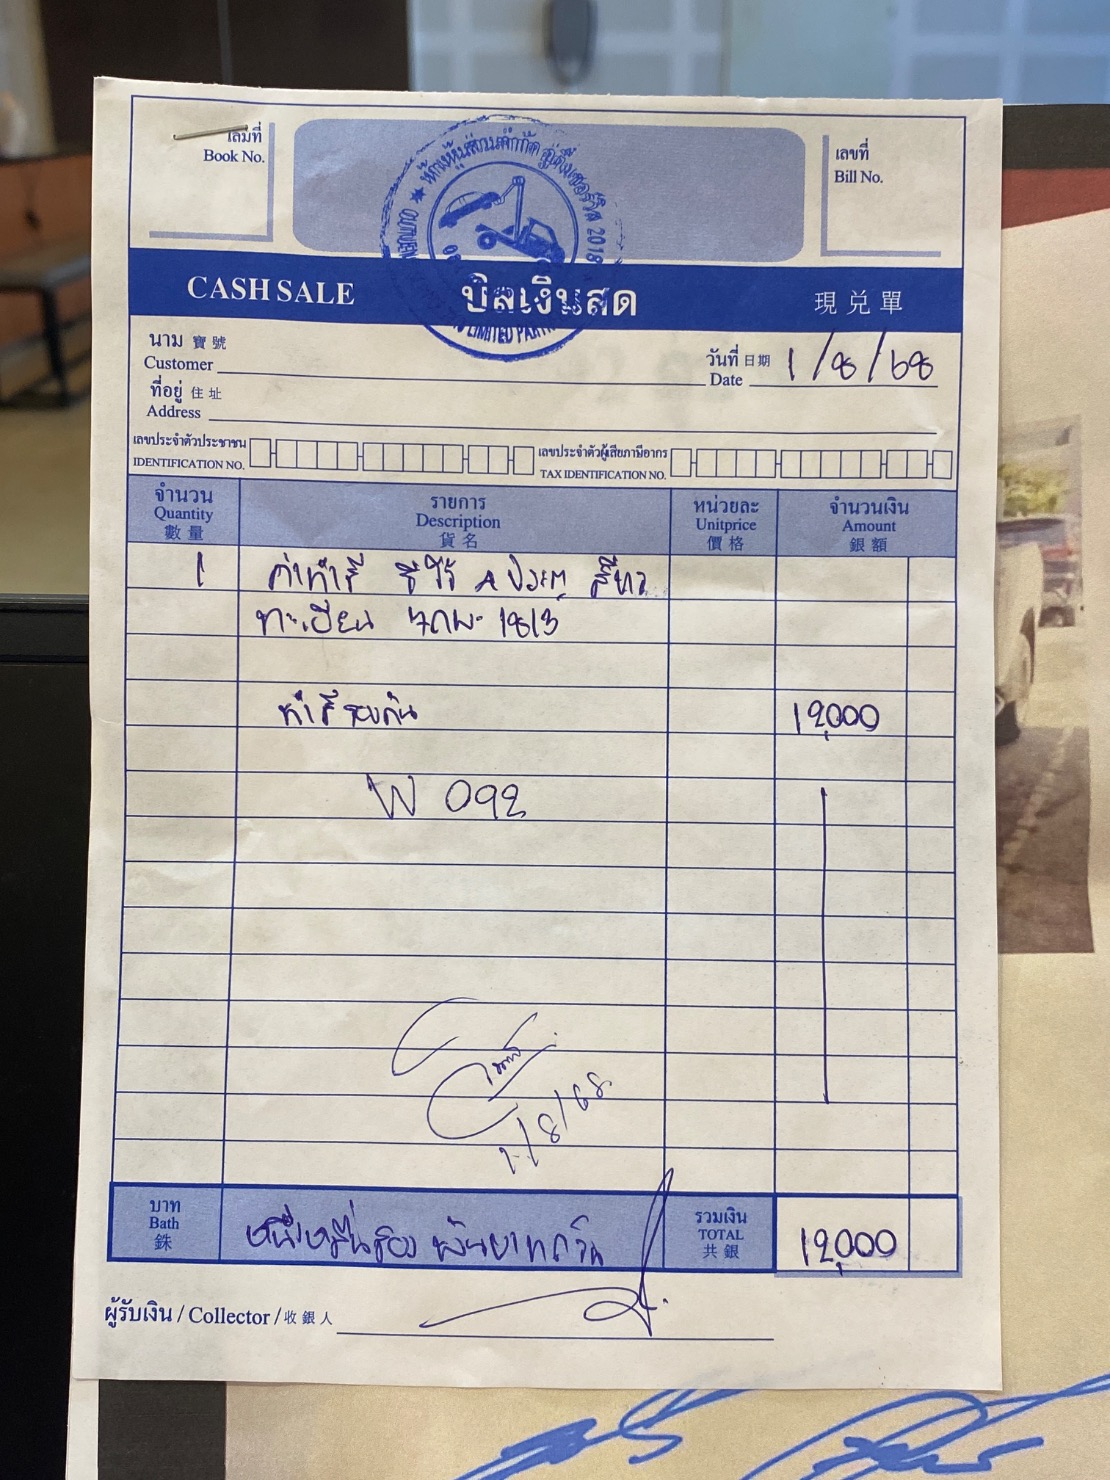 เล่มที่
Book No.
เลขที่
Bill No.
ห้างหุ้นส่วนจำกัด
2018
LIMITED PARTN
CASH SALE บิลเงินสด 現兌單
นาม 寶號
Customer
วันที่ 日期 1/8/68
Date
ที่อยู่ 住址
Address
เลขประจำตัวประชาชน
IDENTIFICATION NO.
เลขประจำตัวผู้เสียภาษีอากร
TAX IDENTIFICATION NO.
จำนวน รายการ หน่วยละ จำนวนเงิน
Quantity Description Unitprice Amount
數量 貨名 價格 銀額
1 ค่าทำสี ซีวิว 4 ประตู สีขาว
ทะเบียน 1813
ทำสีรอบคัน 12,000
W 092
1/8/68
บาท
Bath
銖
หนึ่งหมื่นสองพันบาทถ้วน
รวมเงิน
TOTAL
共銀
12,000
ผู้รับเงิน / Collector / 收銀人